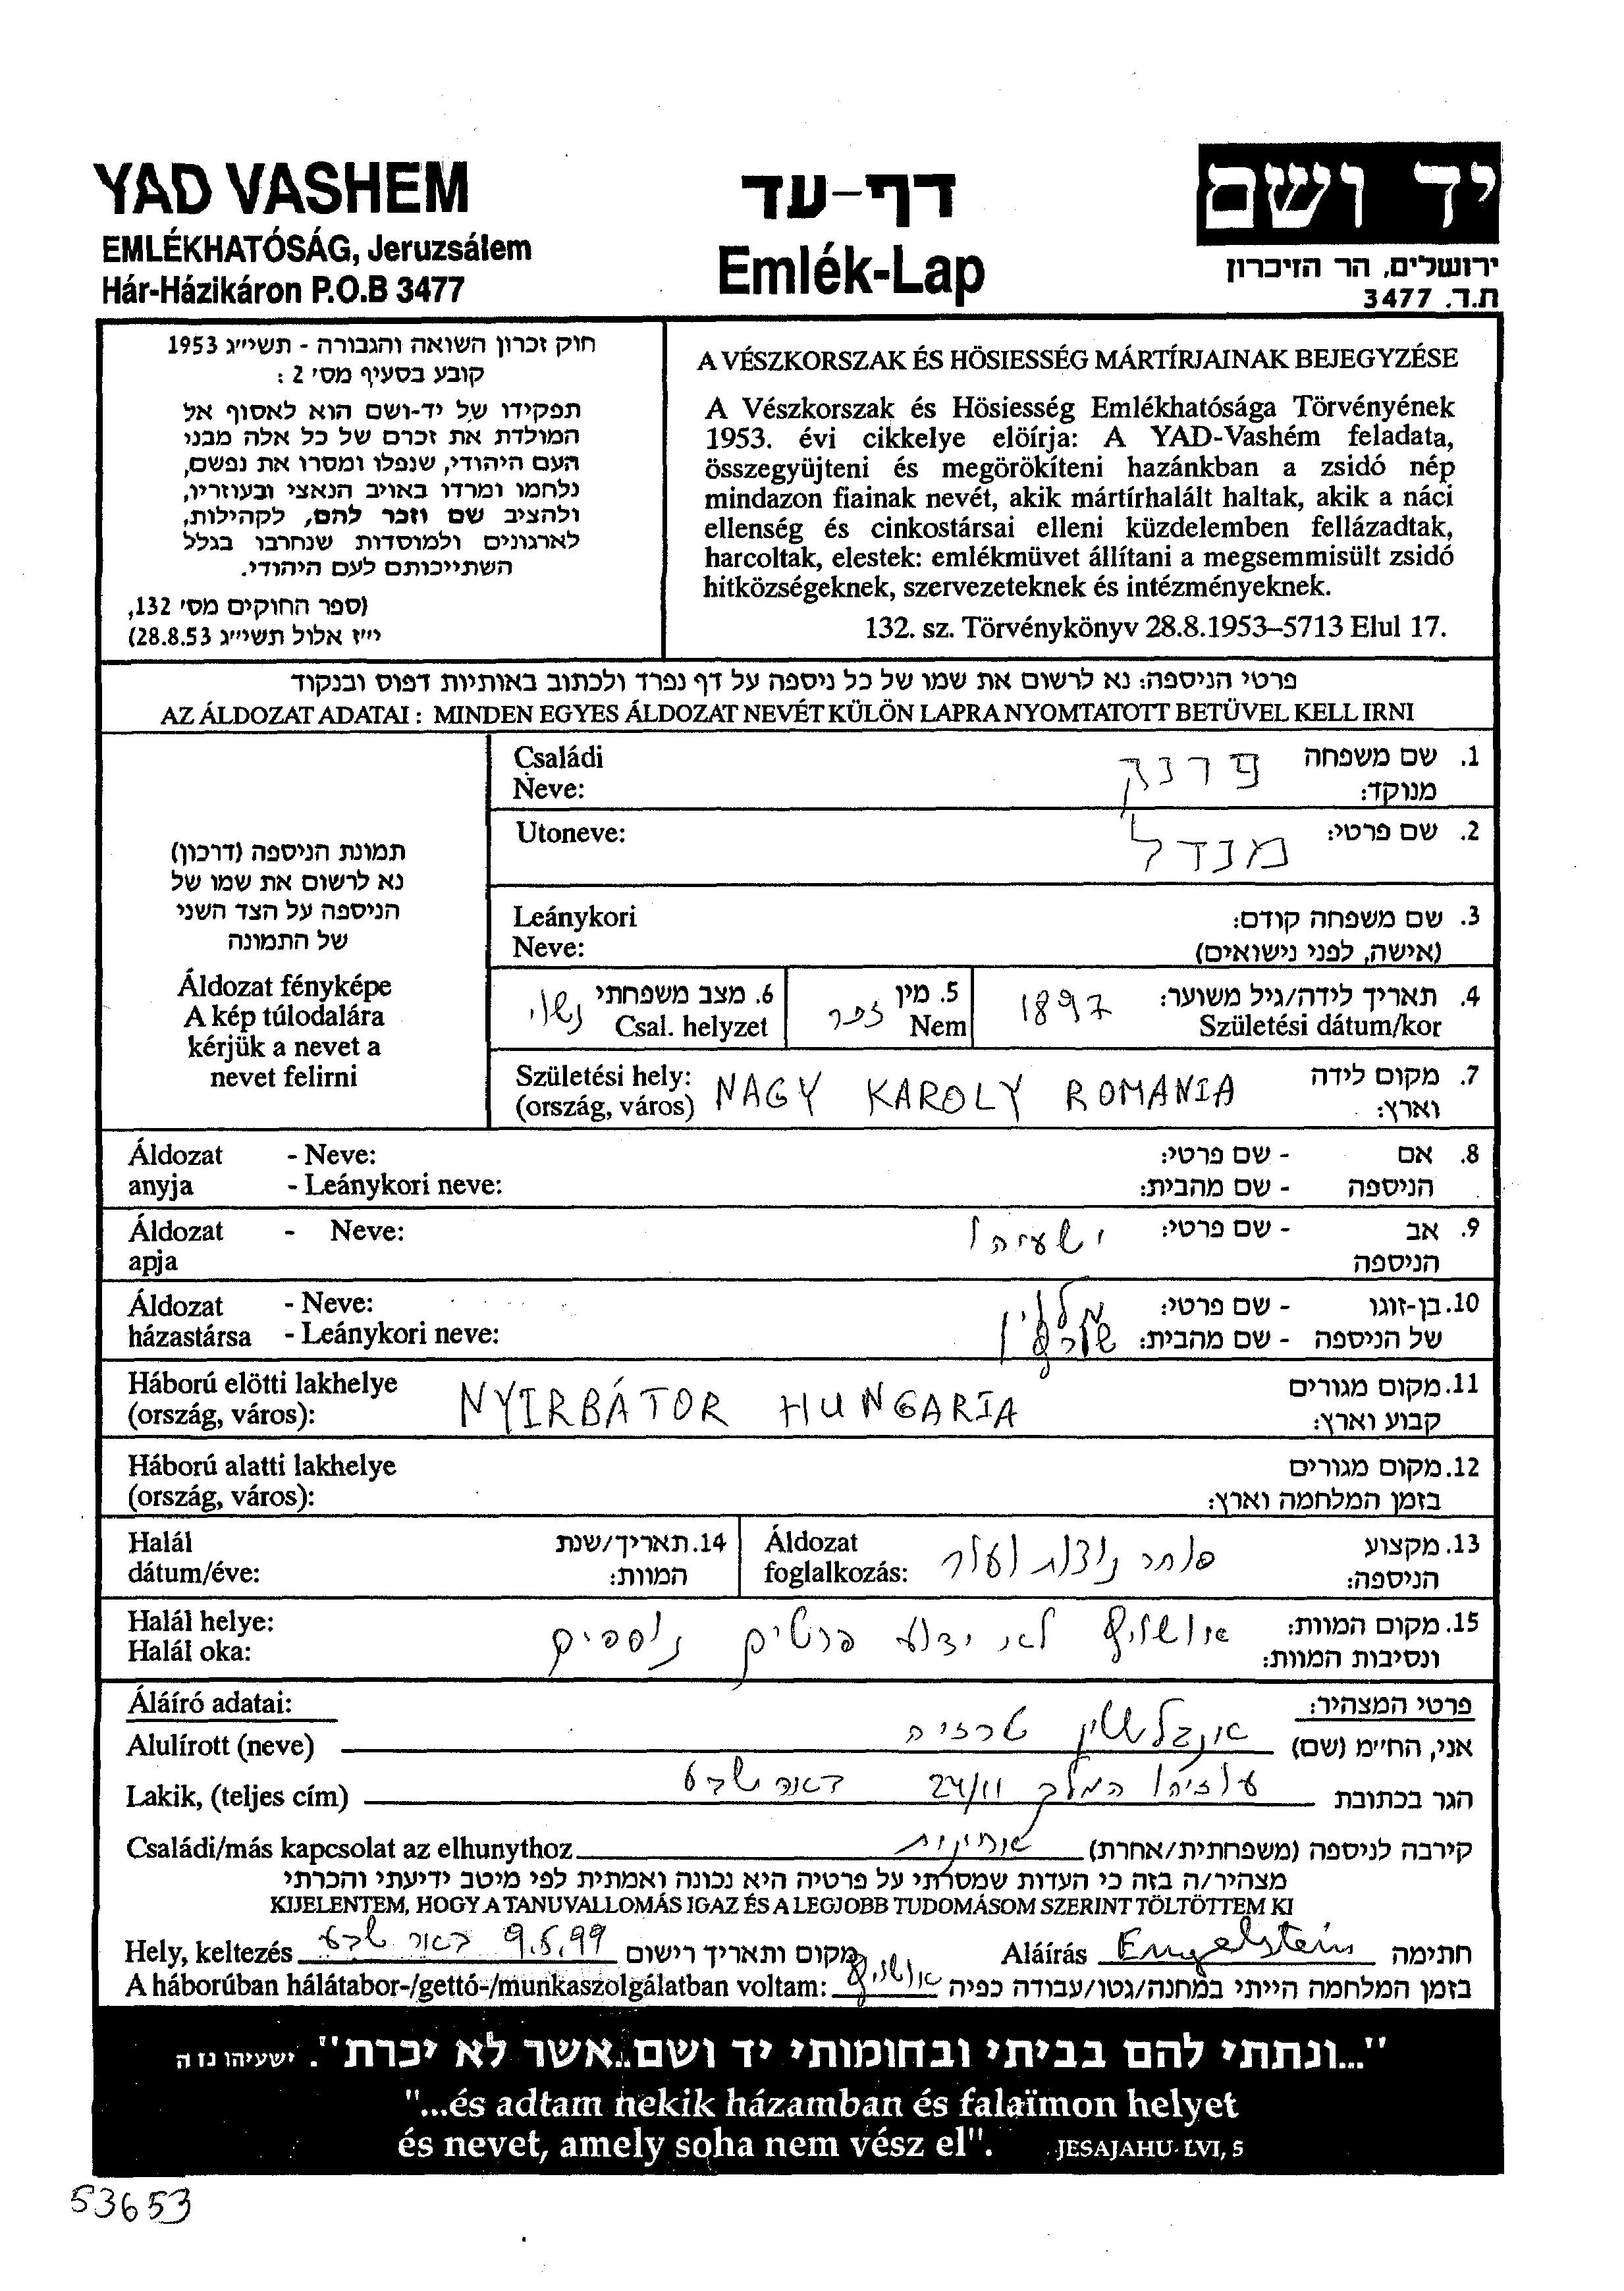 YAD VASHEM
EMLÉKHATÓSÁG, Jeruzsálem
Hár-Házikáron P.O.B 3477
דף-עד
Emlék-Lap
יד ושם
ירושלים, הר הזיכרון
ת.ד. 3477
חוק זכרון השואה והגבורה - תשי״ג 1953
קובע בסעיף מס׳ 2 :
תפקידו של יד-ושם הוא לאסוף אל
המולדת את זכרם של כל אלה מבני
העם היהודי, שנפלו ומסרו את נפשם,
נלחמו ומרדו באויב הנאצי ובעוזריו,
ולהציב שם וזכר להם, לקהילות,
לארגונים ולמוסדות שנחרבו בגלל
השתייכותם לעם היהודי.
(ספר החוקים מס׳ 132,
י״ז אלול תשי״ג 28.8.53)
A VÉSZKORSZAK ÉS HÖSIESSÉG MÁRTÍRJAINAK BEJEGYZÉSE
A Vészkorszak és Hösiesség Emlékhatósága Törvényének
1953. évi cikkelye elöírja: A YAD-Vashém feladata,
összegyüjteni és megörökíteni hazánkban a zsidó nép
mindazon fiainak nevét, akik mártírhalált haltak, akik a náci
ellenség és cinkostársai elleni küzdelemben fellázadtak,
harcoltak, elestek: emlékmüvet állítani a megsemmisült zsidó
hitközségeknek, szervezeteknek és intézményeknek.
132. sz. Törvénykönyv 28.8.1953–5713 Elul 17.
פרטי הניספה: נא לרשום את שמו של כל ניספה על דף נפרד ולכתוב באותיות דפוס ובנקוד
AZ ÁLDOZAT ADATAI : MINDEN EGYES ÁLDOZAT NEVÉT KÜLÖN LAPRA NYOMTATOTT BETÜVEL KELL IRNI
תמונת הניספה (דרכון)
נא לרשום את שמו של
הניספה על הצד השני
של התמונה
Áldozat fényképe
A kép túlodalára
kérjük a nevet a
nevet felirni
1. שם משפחה פרנק Családi
מנוקד: Neve:
2. שם פרטי: מנדל Utoneve:
3. שם משפחה קודם: Leánykori
(אישה, לפני נישואים) Neve:
4. תאריך לידה/גיל משוער: 1897
Születési dátum/kor
5. מין זכר
Nem
6. מצב משפחתי נשוי
Csal. helyzet
7. מקום לידה
וארץ:
Születési hely: NAGY KAROLY ROMANIA
(ország, város)
8. אם - שם פרטי: Áldozat - Neve:
הניספה - שם מהבית: anyja - Leánykori neve:
9. אב - שם פרטי: ישעיהו Áldozat - Neve:
הניספה apja
10. בן-זוגו - שם פרטי: Áldozat - Neve:
של הניספה - שם מהבית: házastársa - Leánykori neve:
11. מקום מגורים Háború elötti lakhelye
קבוע וארץ: (ország, város): NYIRBÁTOR HUNGARIA
12. מקום מגורים Háború alatti lakhelye
בזמן המלחמה וארץ: (ország, város):
13. מקצוע סוחר נוצות ועור Áldozat
הניספה: foglalkozás:
14. תאריך/שנת Halál
המוות: dátum/éve:
15. מקום המוות: אושויץ לא ידוע פרטים נוספים Halál helye:
ונסיבות המוות: Halál oka:
פרטי המצהיר: Áláíró adatai:
אני, הח״מ (שם) אנגלשטין טרזיה Alulírott (neve)
הגר בכתובת עוזיהו המלך 24/11 באר שבע Lakik, (teljes cím)
קירבה לניספה (משפחתית/אחרת) אחינית Családi/más kapcsolat az elhunythoz
מצהיר/ה בזה כי העדות שמסרתי על פרטיה היא נכונה ואמתית לפי מיטב ידיעתי והכרתי
KIJELENTEM, HOGY A TANUVALLOMÁS IGAZ ÉS A LEGJOBB TUDOMÁSOM SZERINT TÖLTÖTTEM KI
Hely, keltezés באר שבע 9.5.99 מקום ותאריך רישום Aláírás Engelstein חתימה
A háborúban hálátabor-/gettó-/munkaszolgálatban voltam: אושויץ בזמן המלחמה הייתי במחנה/גטו/עבודה כפיה
"...ונתתי להם בביתי ובחומותי יד ושם..אשר לא יכרת". ישעיהו נז ה
"...és adtam nekik házamban és falaïmon helyet
és nevet, amely soha nem vész el". JESAJAHU- LVI, 5
53653